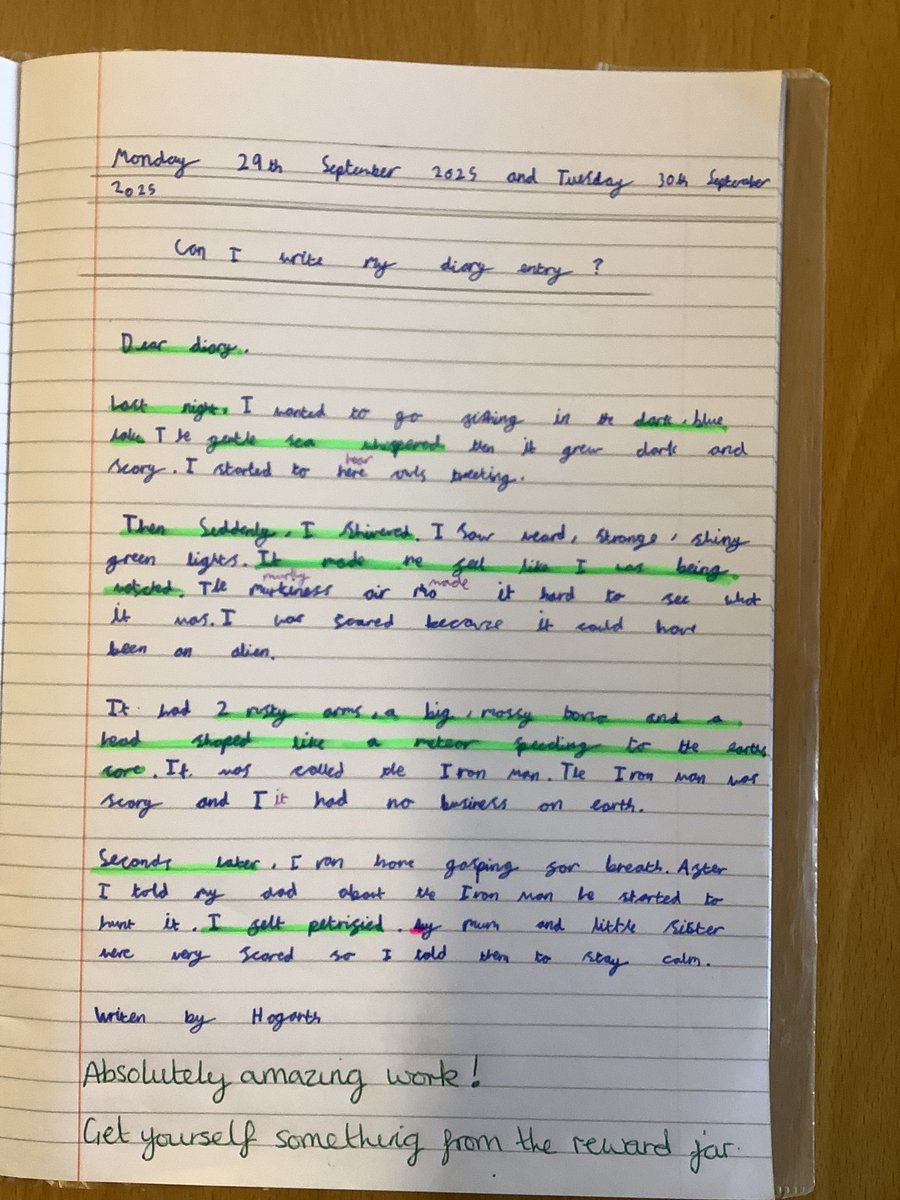 Monday 29th September 2025 and Tuesday 30th September
2025
Can I write my diary entry ?
Dear diary.
Last night, I wanted to go fishing in the dark, blue
lake. The gentle sea whispered then it grew dark and
scary. I started to here hear owls tweeting.
Then Suddenly, I shivered. I saw weard, strange, shiny
green lights. It made me feel like I was being
watched. The murkiness murky air made it hard to see what
it was. I was scared because it could have
been an alien.
It had 2 rusty arms, a big, mossy torso and a
head shaped like a meteor speeding to the earths
core. It was called the Iron man. The Iron man was
scary and I it had no business on earth.
Seconds later, I ran home gasping for breath. After
I told my dad about the Iron man he started to
hunt it. I felt petrified. My mum and little sister
were very scared so I told them to stay calm.
Writen by Hogarth
Absolutely amazing work!
Get yourself something from the reward jar.